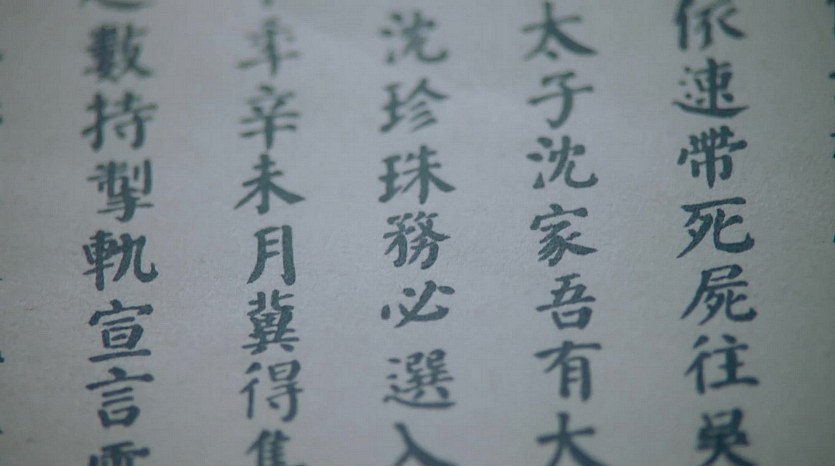 依速帶死屍往吳
太子沈家吾有大
沈珍珠務必選入
年辛未月冀得隻
數持掣軌宣言雲